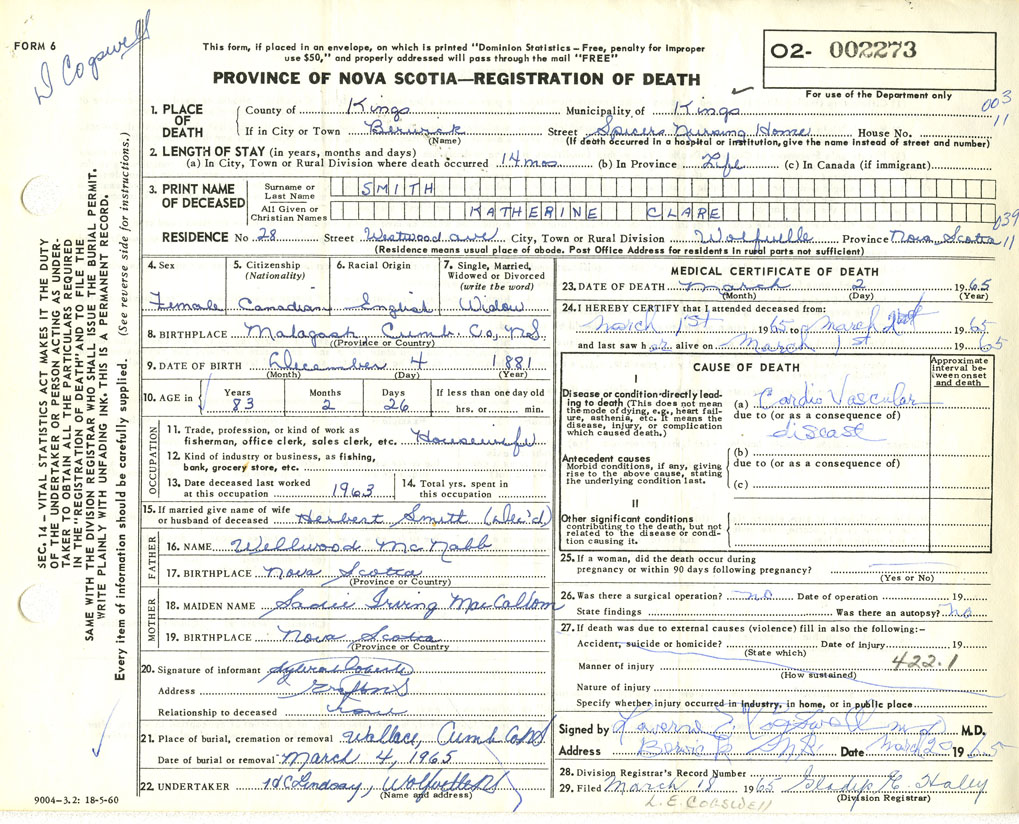 FORM 6
D Cogswell
This form, if placed in an envelope, on which is printed "Dominion Statistics – Free, penalty for improper
use $50," and properly addressed will pass through the mail "FREE"
PROVINCE OF NOVA SCOTIA—REGISTRATION OF DEATH
O2- 002273
For use of the Department only
003
11
1. PLACE OF DEATH
County of Kings Municipality of Kings
If in City or Town Berwick Street Spicers Nursing Home House No.
(Name) (If death occurred in a hospital or institution, give the name instead of street and number)
2. LENGTH OF STAY (in years, months and days)
(a) In City, Town or Rural Division where death occurred 14 mos (b) In Province Life (c) In Canada (if immigrant)
3. PRINT NAME OF DECEASED
Surname or Last Name SMITH
All Given or Christian Names KATHERINE CLARE
039
11
RESIDENCE No 28 Street Westwood ave City, Town or Rural Division Wolfville Province Nova Scotia
(Residence means usual place of abode. Post Office Address for residents in rural parts not sufficient)
4. Sex Female
5. Citizenship (Nationality) Canadian
6. Racial Origin English
7. Single, Married, Widowed or Divorced (write the word) Widow
8. BIRTHPLACE Malagash Cumb. Co, NS
(Province or Country)
9. DATE OF BIRTH December 4 1881
(Month) (Day) (Year)
10. AGE in Years 83 Months 2 Days 26 If less than one day old hrs. or min.
OCCUPATION
11. Trade, profession, or kind of work as
fisherman, office clerk, sales clerk, etc. Housewife
12. Kind of industry or business, as fishing,
bank, grocery store, etc.
13. Date deceased last worked at this occupation 1963
14. Total yrs. spent in this occupation
15. If married give name of wife
or husband of deceased Herbert Smith (Dec'd)
FATHER
16. NAME Wellwood McNabb
17. BIRTHPLACE Nova Scotia
(Province or Country)
MOTHER
18. MAIDEN NAME Sadie Irving MacCallom
19. BIRTHPLACE Nova Scotia
(Province or Country)
20. Signature of informant
Address Grafton NS
Relationship to deceased none
21. Place of burial, cremation or removal Wallace, Cumb Co NS
Date of burial or removal March 4, 1965
22. UNDERTAKER Lindsay, Wolfville NS
(Name and address)
MEDICAL CERTIFICATE OF DEATH
23. DATE OF DEATH March 2 1965
(Month) (Day) (Year)
24. I HEREBY CERTIFY that I attended deceased from:
March 1st 1965 to March 1965
and last saw her alive on March 1st 1965
CAUSE OF DEATH
Approximate interval between onset and death
I
Disease or condition directly leading to death (This does not mean
the mode of dying, e.g., heart failure, asthenia, etc. It means the
disease, injury, or complication
which caused death.)
(a) Cardio Vascular
due to (or as a consequence of)
disease
Antecedent causes
Morbid conditions, if any, giving
rise to the above cause, stating
the underlying condition last.
(b)
due to (or as a consequence of)
(c)
II
Other significant conditions
contributing to the death, but not
related to the disease or condition causing it.
25. If a woman, did the death occur during
pregnancy or within 90 days following pregnancy?
(Yes or No)
26. Was there a surgical operation? no Date of operation 19
State findings Was there an autopsy? no
27. If death was due to external causes (violence) fill in also the following:–
Accident, suicide or homicide? Date of injury 19
(State which)
422.1
Manner of injury
(How sustained)
Nature of injury
Specify whether injury occurred in industry, in home, or in public place
Signed by Laverne E Cogswell M.D.
Address Berwick N.S. Date March 20 1965
28. Division Registrar's Record Number
29. Filed March 18 1965 Gladys E. Haley
(Division Registrar)
L. E. COGSWELL
SEC. 14 – VITAL STATISTICS ACT MAKES IT THE DUTY
OF THE UNDERTAKER OR PERSON ACTING AS UNDER-
TAKER TO OBTAIN ALL THE PARTICULARS REQUIRED
IN THE "REGISTRATION OF DEATH" AND TO FILE THE
SAME WITH THE DIVISION REGISTRAR WHO SHALL ISSUE THE BURIAL PERMIT.
WRITE PLAINLY WITH UNFADING INK. THIS IS A PERMANENT RECORD.
Every item of information should be carefully supplied. (See reverse side for instructions.)
9004–3.2: 18-5-60